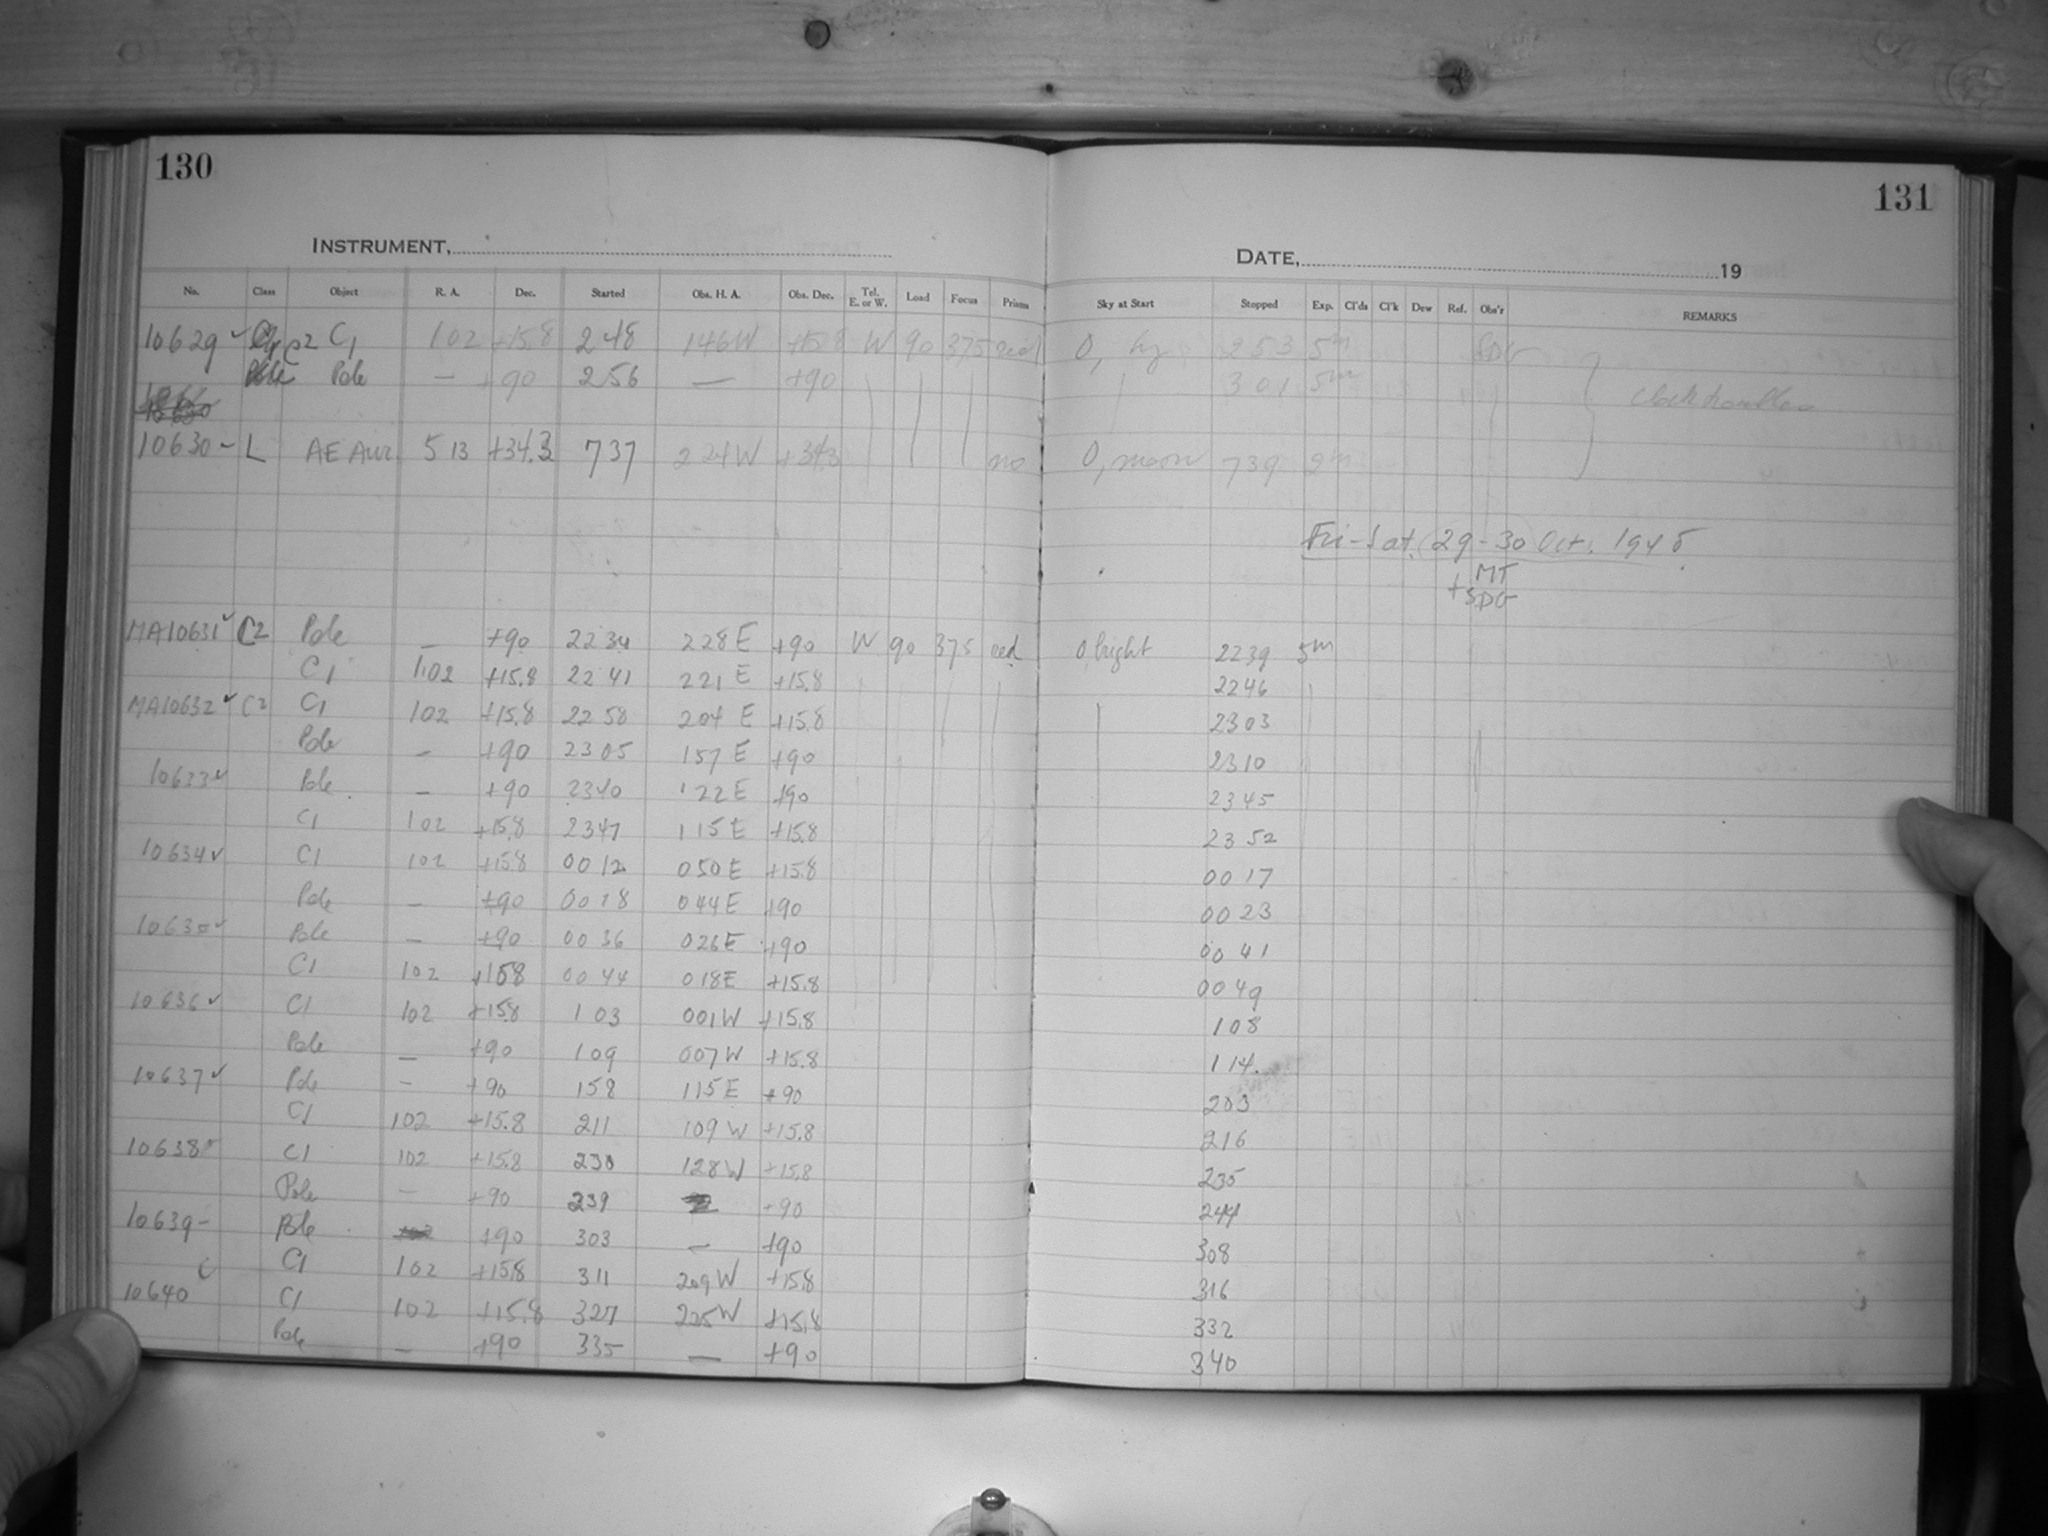 130
131
INSTRUMENT,
DATE, 19
No. Class Object R. A. Dec. Started Obs. H. A. Obs. Dec. Tel. E. or W. Load Focus Prisms Sky at Start Stopped Exp. Cl'ds Cl'k Dew Ref. Obs'r REMARKS
10629 ✓ C2 C1 102 +15.8 248 146W +15.8 W 90 375 red 0, 253 5m SDG
Pole — +90 256 — +90 301 5m
10630 - L AE Aur 5 13 +34.3 737 224W +34.3 no 0, moon 739 2m
Fri-Sat. (29-30) Oct. 1948
+ MT
SDG
MA10631 ✓ C2 Pole — +90 2234 228E +90 W 90 375 red 0, bright 2239 5m
C1 1.02 +15.8 2241 221 E +15.8 2246
MA10632 ✓ C2 C1 102 +15.8 2258 204 E +15.8 2303
Pole — +90 2305 157 E +90 2310
10633 ✓ Pole — +90 2340 122E +90 2345
C1 102 +15.8 2347 115E +15.8 2352
10634 ✓ C1 102 +15.8 0012 050E +15.8 0017
Pole — +90 0018 044E +90 0023
10635 ✓ Pole — +90 0036 026E +90 0041
C1 102 +158 0044 018E +15.8 0049
10636 ✓ C1 102 +158 103 001W +15.8 108
Pole — +90 109 007W +15.8 114.
10637 ✓ Pole — +90 158 115E +90 203
C1 102 +15.8 211 109W +15.8 216
10638 C1 102 +15.8 230 128W +15.8 235
Pole — +90 239 +90 244
10639 - Pole +90 303 — +90 308
C1 102 +15.8 311 209W +15.8 316
10640 C1 102 +15.8 327 225W +15.8 332
Pole — +90 335 — +90 340